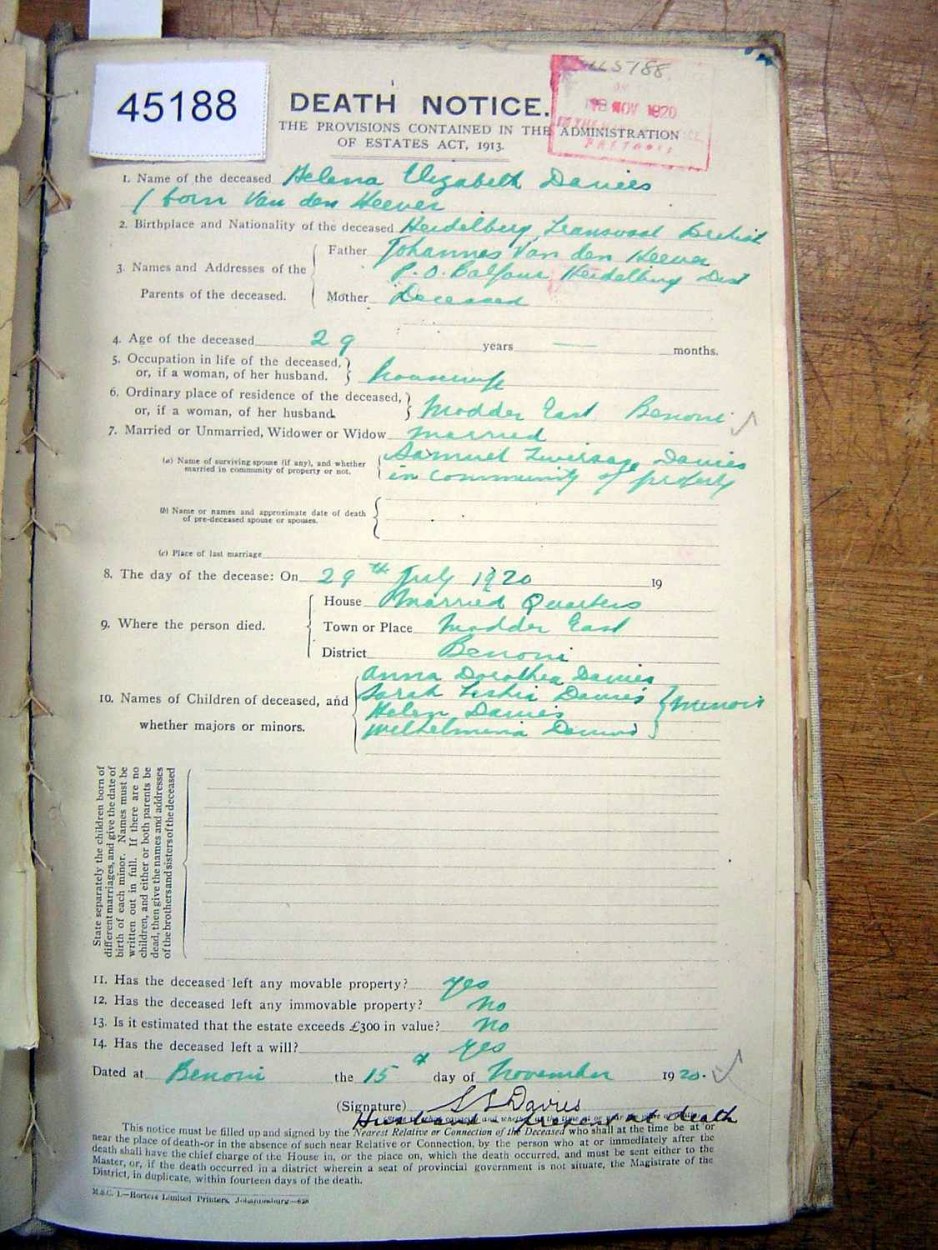 45188
45188
18 NOV 1920
PRETORIA
DEATH NOTICE.
THE PROVISIONS CONTAINED IN THE ADMINISTRATION
OF ESTATES ACT, 1913.
1. Name of the deceased Helena Elizabeth Davies
( born Van den Heever
2. Birthplace and Nationality of the deceased Heidelberg Transvaal British
3. Names and Addresses of the Parents of the deceased.
Father Johannes Van den Heever
P.O. Balfour Heidelberg Dist
Mother Deceased
4. Age of the deceased 29 years — months.
5. Occupation in life of the deceased,
or, if a woman, of her husband. housewife
6. Ordinary place of residence of the deceased,
or, if a woman, of her husband. Modder East Benoni
7. Married or Unmarried, Widower or Widow married
(a) Name of surviving spouse (if any), and whether
married in community of property or not.
Samuel Davies
in community of property
(b) Name or names and approximate date of death
of pre-deceased spouse or spouses.
(c) Place of last marriage
8. The day of the decease: On 29th July 1920 19
9. Where the person died.
House Married Quarters
Town or Place Modder East
District Benoni
10. Names of Children of deceased, and
whether majors or minors.
Anna Dorothea Davies
Sarah Davies
Helen Davies
Wilhelmina Davies
} Minors
State separately the children born of
different marriages, and give the date of
birth of each minor. Names must be
written out in full. If there are no
children, and either or both parents be
dead, then give the names and addresses
of the brothers and sisters of the deceased
11. Has the deceased left any movable property? Yes
12. Has the deceased left any immovable property? No
13. Is it estimated that the estate exceeds £300 in value? No
14. Has the deceased left a will? Yes
Dated at Benoni the 15th day of November 1920.
(Signature) S L Davies
Husband present at death
This notice must be filled up and signed by the Nearest Relative or Connection of the Deceased who shall at the time be at or
near the place of death—or in the absence of such near Relative or Connection, by the person who at or immediately after the
death shall have the chief charge of the House in, or the place on, which the death occurred, and must be sent either to the
Master, or, if the death occurred in a district wherein a seat of provincial government is not situate, the Magistrate of the
District, in duplicate, within fourteen days of the death.
M.&C. 1.—Hortors Limited Printers, Johannesburg—628